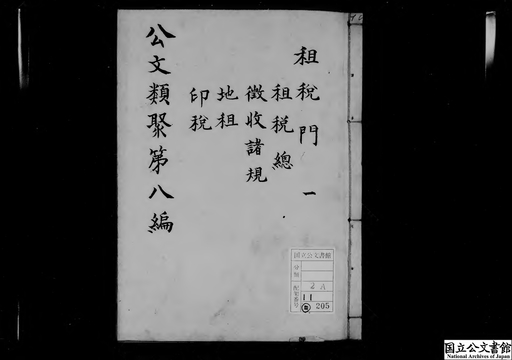 租税門 一
租税總
徴收諸規
地租
印税
公文類聚第八編
國立公文書館
分類
配架番号
2A
11
205
国立公文書館
National Archives of Japan